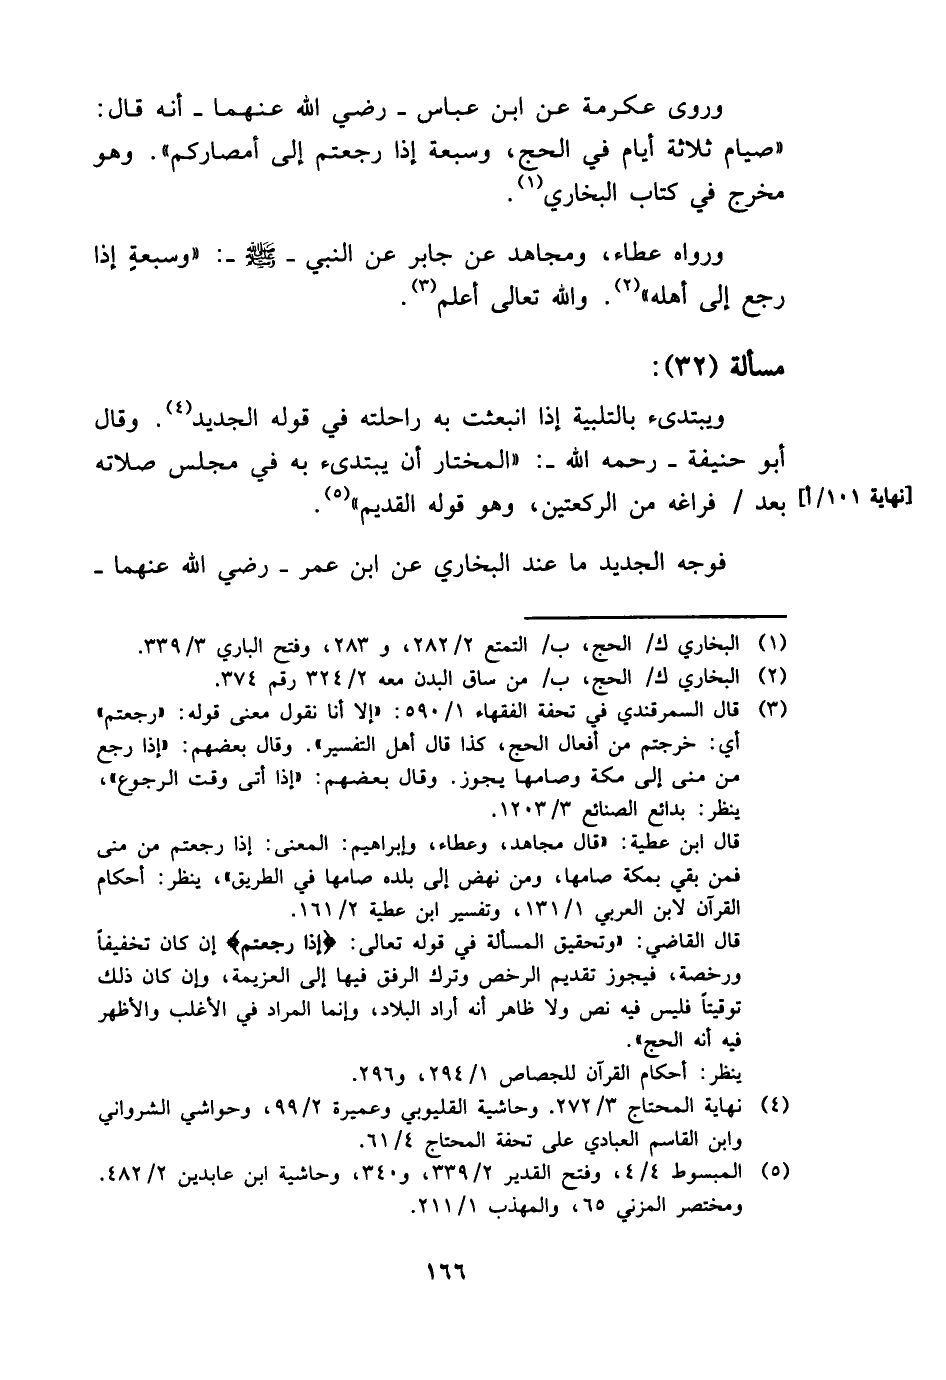 وروى عكرمة عن ابن عباس ـ رضي الله عنهما ـ أنه قال:
«صيام ثلاثة أيام في الحج، وسبعة إذا رجعتم إلى أمصاركم». وهو
مخرج في كتاب البخاري(١).
ورواه عطاء، ومجاهد عن جابر عن النبي ـ ﷺ ـ: «وسبعةٍ إذا
رجع إلى أهله»(٢). والله تعالى أعلم(٣).
مسألة (٣٢):
ويبتدىء بالتلبية إذا انبعثت به راحلته في قوله الجديد(٤). وقال
أبو حنيفة ـ رحمه الله ـ: «المختار أن يبتدىء به في مجلس صلاته
بعد / فراغه من الركعتين، وهو قوله القديم»(٥). [نهاية ١٠١/أ]
فوجه الجديد ما عند البخاري عن ابن عمر ـ رضي الله عنهما ـ
(١) البخاري ك/ الحج، ب/ التمتع ٢٨٢/٢، و ٢٨٣، وفتح الباري ٣٣٩/٣.
(٢) البخاري ك/ الحج، ب/ من ساق البدن معه ٣٢٤/٢ رقم ٣٧٤.
(٣) قال السمرقندي في تحفة الفقهاء ٥٩٠/١: «إلا أنا نقول معنى قوله: «رجعتم»
أي: خرجتم من أفعال الحج، كذا قال أهل التفسير». وقال بعضهم: «إذا رجع
من منى إلى مكة وصامها يجوز. وقال بعضهم: «إذا أتى وقت الرجوع»،
ينظر: بدائع الصنائع ١٢٠٣/٣.
قال ابن عطية: «قال مجاهد، وعطاء، وإبراهيم: المعنى: إذا رجعتم من منى
فمن بقي بمكة صامها، ومن نهض إلى بلده صامها في الطريق»، ينظر: أحكام
القرآن لابن العربي ١٣١/١، وتفسير ابن عطية ١٦١/٢.
قال القاضي: «وتحقيق المسألة في قوله تعالى: ﴿إذا رجعتم﴾ إن كان تخفيفاً
ورخصة، فيجوز تقديم الرخص وترك الرفق فيها إلى العزيمة، وإن كان ذلك
توقيتاً فليس فيه نص ولا ظاهر أنه أراد البلاد، وإنما المراد في الأغلب والأظهر
فيه أنه الحج».
ينظر: أحكام القرآن للجصاص ٢٩٤/١، و٢٩٦.
(٤) نهاية المحتاج ٢٧٢/٣. وحاشية القليوبي وعميرة ٩٩/٢، وحواشي الشرواني
وابن القاسم العبادي على تحفة المحتاج ٦١/٤.
(٥) المبسوط ٤/٤، وفتح القدير ٣٣٩/٢، و٣٤٠، وحاشية ابن عابدين ٤٨٢/٢.
ومختصر المزني ٦٥، والمهذب ٢١١/١.
١٦٦